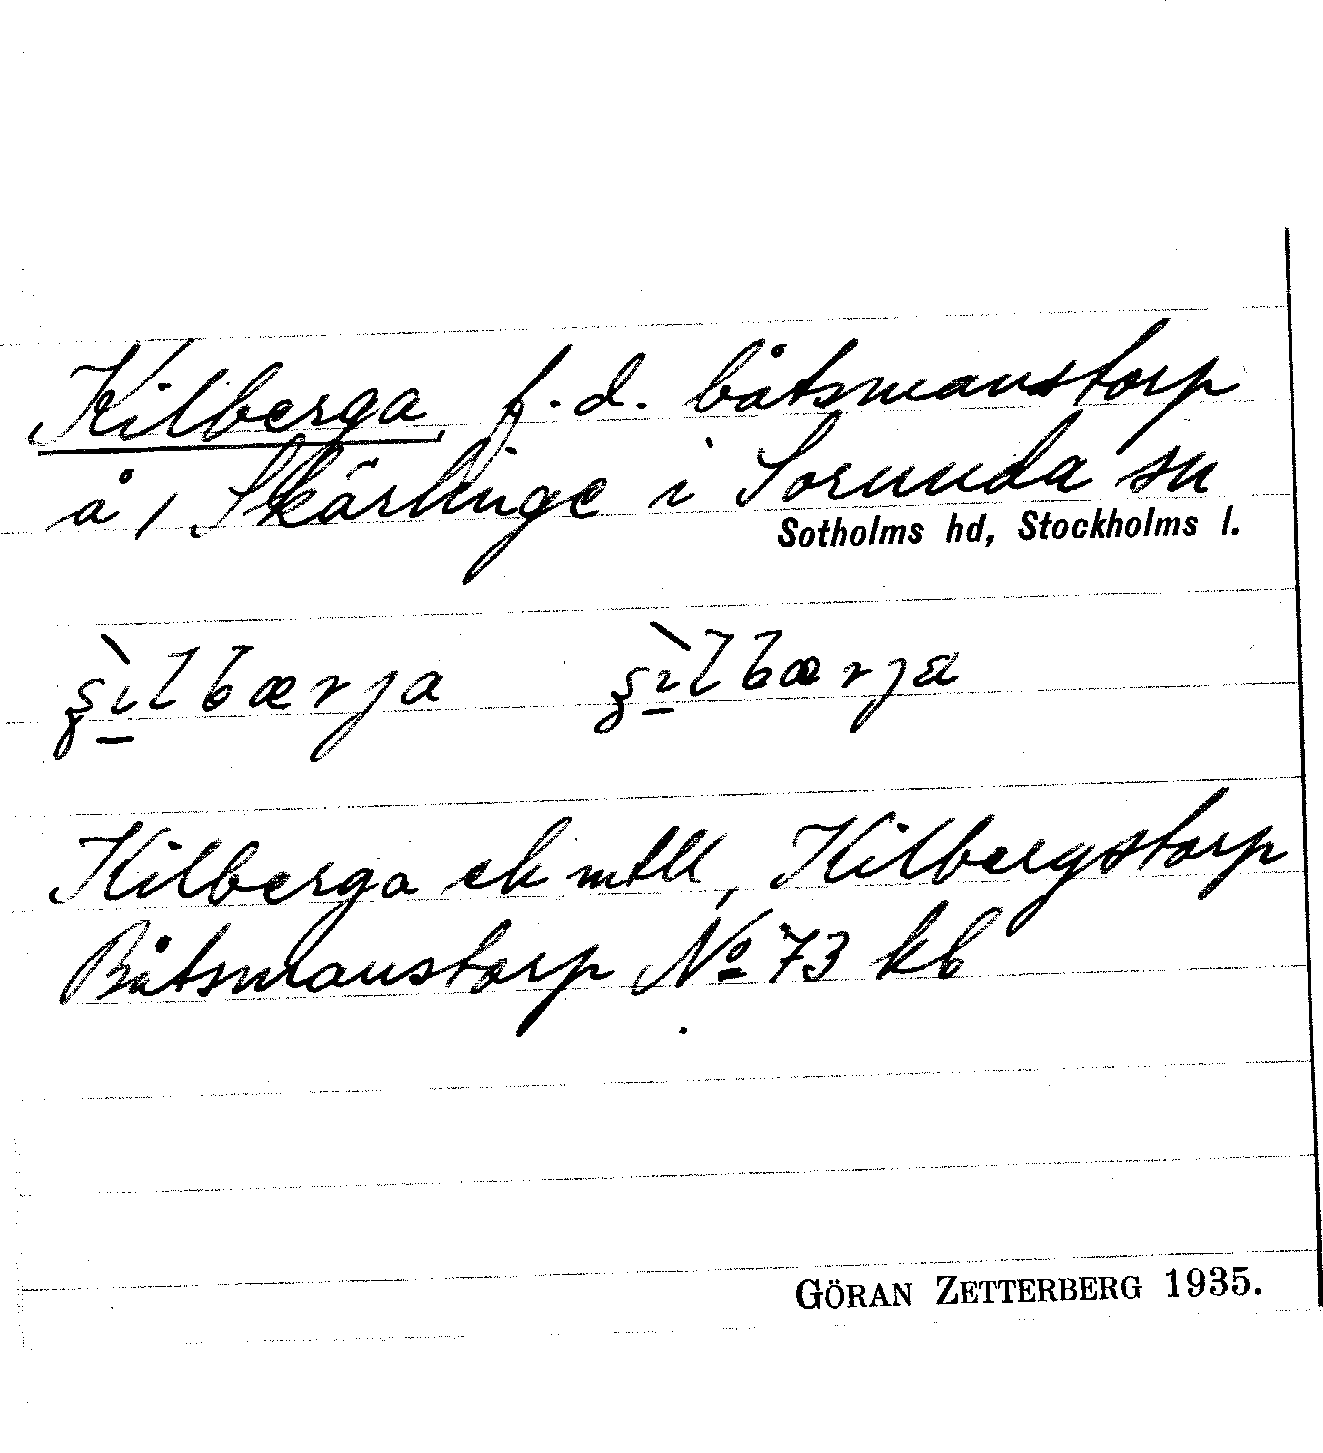 Kilberga f.d. båtsmanstorp
å / Skärlinge i Sorunda sn
Sotholms hd, Stockholms l.
Kilberga ek mtll, Kilbergstorp
Båtsmanstorp No 73 kb
GÖRAN ZETTERBERG 1935.